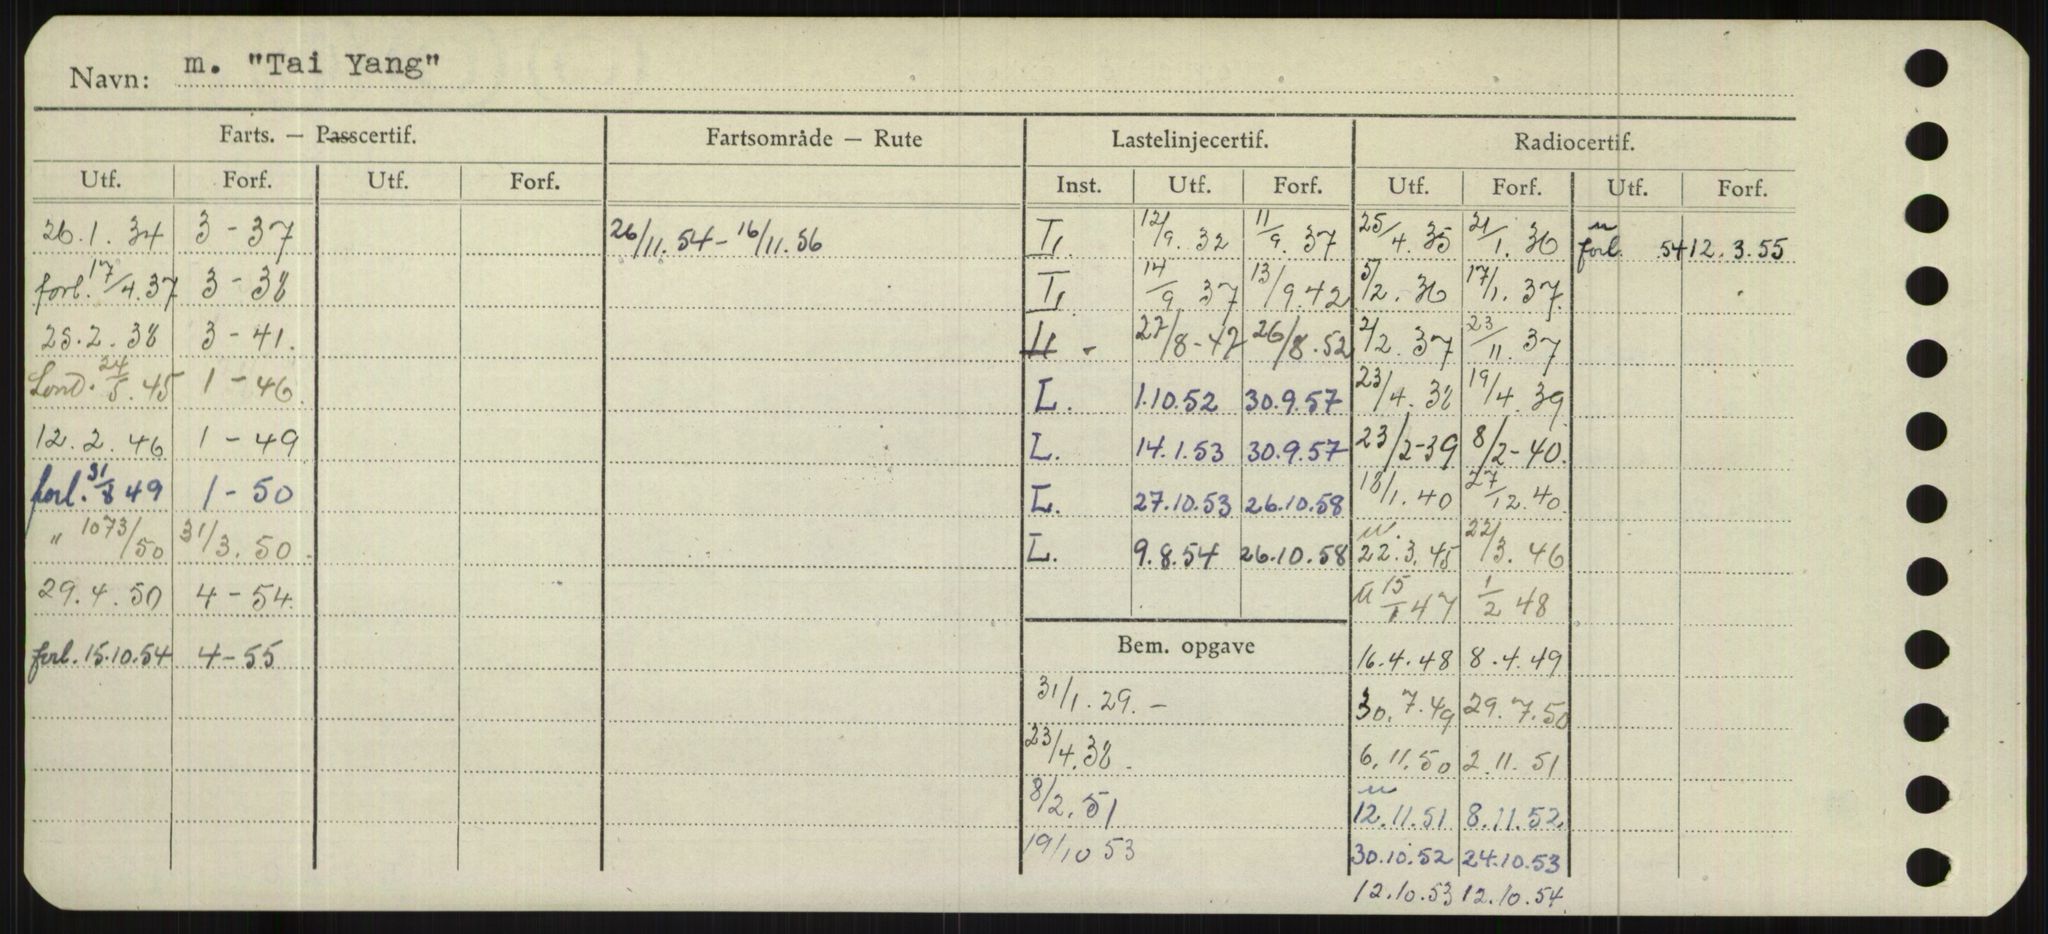 Navn: m. "Tai Yang"
Farts. — Passcertif. Fartsområde — Rute Lastelinjecertif. Radiocertif.
Utf. Forf. Utf. Forf. Inst. Utf. Forf. Utf. Forf. Utf. Forf.
26.1.34 3-37 26/11.54-16/11.56 I. 12/9.32 11/9.37 25/4.35 21/1.36 forl. 54 12.3.55
forl. 17/4.37 3-38 I. 14/9 37 13/9.42 5/2.36 17/1.37
25.2.38 3-41. 27/8-47 26/8.52 2/2.37 23/11.37
Lond. 24/5.45 1-46 L. 1.10.52 30.9.57 23/4.38 19/4.39
12.2.46 1-49 L. 14.1.53 30.9.57 23/2-39 8/2-40.
forl. 31/8 49 1-50 L. 27.10.53 26.10.58 18/1.40 27/12.40
" 1073/50 31/3.50 L. 9.8.54 26.10.58 22.3.45 22/3.46
29.4.50 4-54 15/1 47 1/2 48
forl. 15.10.54 4-55 Bem. opgave 16.4.48 8.4.49
31/1.29.- 30.7.49 29.7.50
23/4.38. 6.11.50 2.11.51
8/2.51 12.11.51 8.11.52
19/10 53 30.10.52 24.10.53
12.10.53 12.10.54